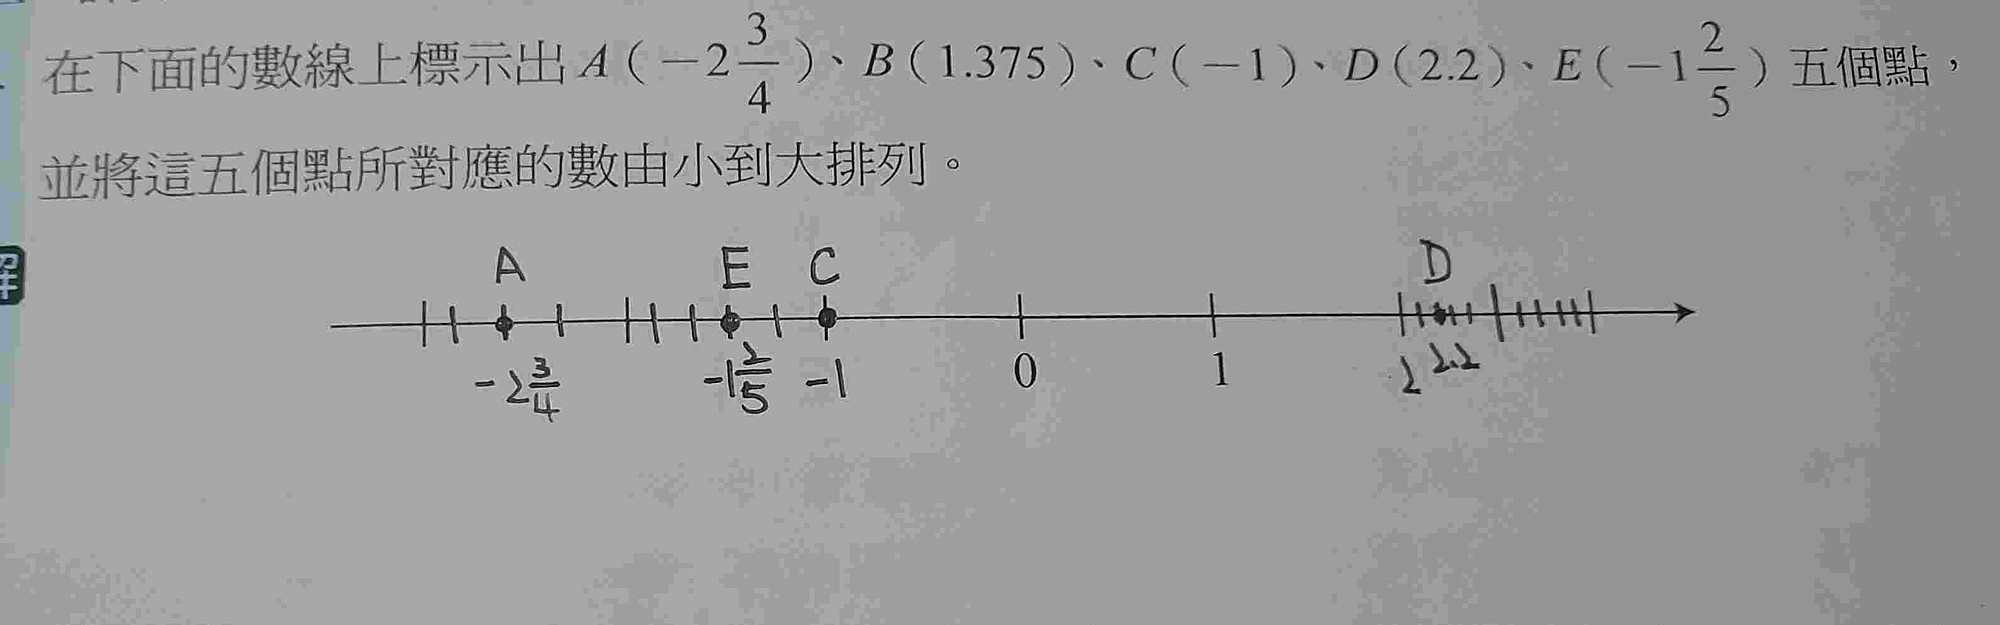 在下面的數線上標示出 A(-2 3/4)、B(1.375)、C(-1)、D(2.2)、E(-1 2/5) 五個點，
並將這五個點所對應的數由小到大排列。
解
A E C D
-2 3/4 -1 2/5 -1 0 1 2 2.2